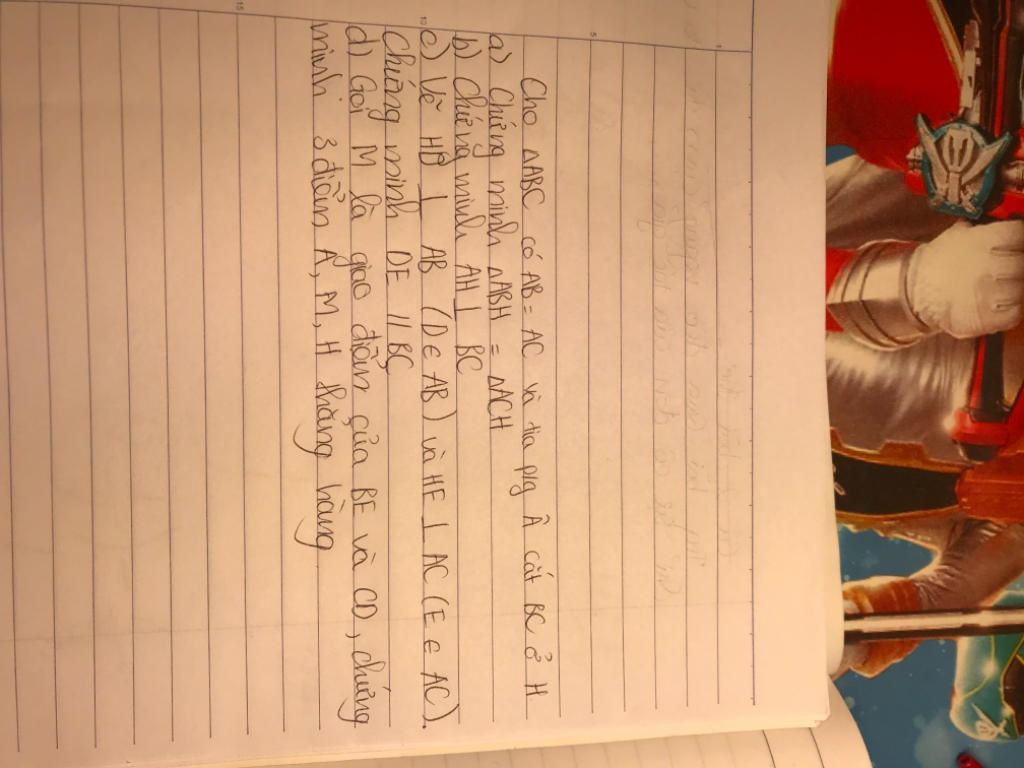 Cho ΔABC có AB = AC và tia pg Â cắt BC ở H
a) Chứng minh ΔABH = ΔACH
b) Chứng minh AH ⊥ BC
c) Vẽ HD ⊥ AB (D ∈ AB) và HE ⊥ AC (E ∈ AC).
Chứng minh DE // BC
d) Gọi M là giao điểm của BE và CD, chứng
minh 3 điểm A, M, H thẳng hàng
1
5
10
15